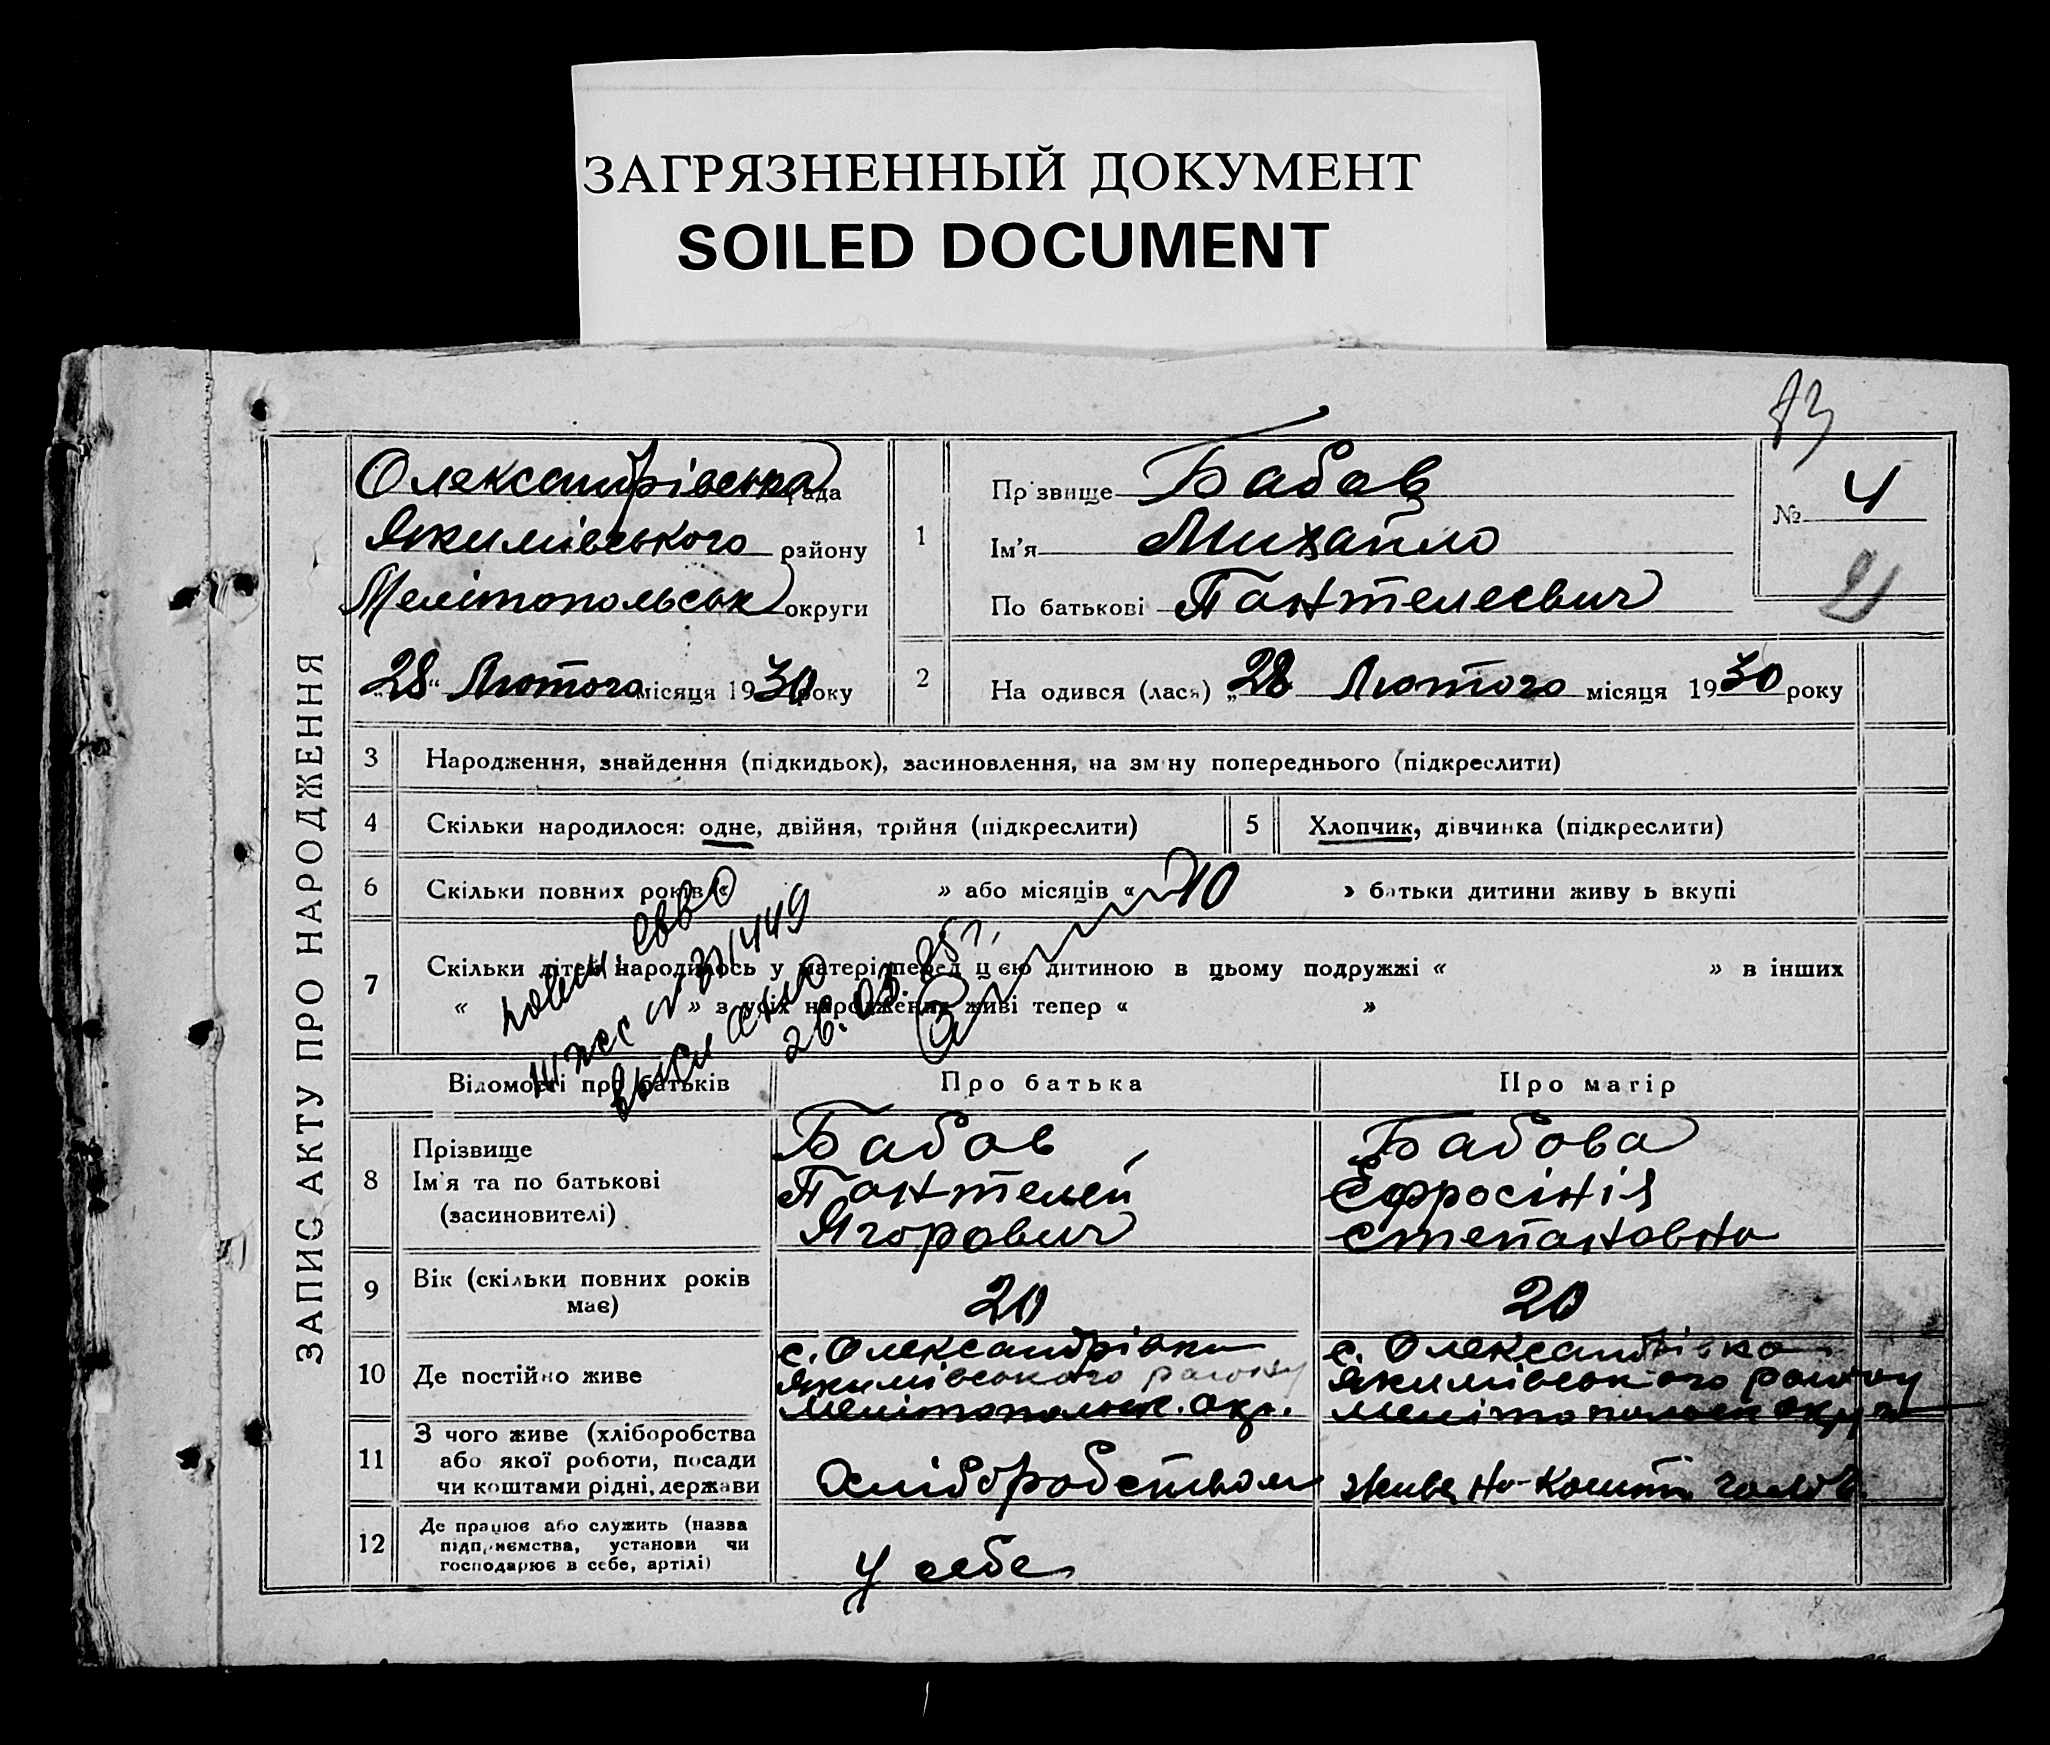 ЗАГРЯЗНЕННЫЙ ДОКУМЕНТ
SOILED DOCUMENT
ЗАПИС АКТУ ПРО НАРОДЖЕННЯ
Олександрівська рада
Якимівського району
Мелітопольськ округи
28 " Лютого місяця 1930 року
1
Прізвище Бабов
Ім'я Михайло
По батькові Пантелеевич
№ 4
2
На одився (лася) „28 Лютого місяця 1930 року
3 Народження, знайдення (підкидьок), засиновлення, на зміну попереднього (підкреслити)
4 Скільки народилося: одне, двійня, трійня (підкреслити)
5 Хлопчик, дівчинка (підкреслити)
6 Скільки повних років « » або місяців « 10 » батьки дитини живу ь вкупі
7 Скільки дітей народилось у матері перед цією дитиною в цьому подружжі « » в інших
« » з усіх народжених живі тепер « »
повт. св-во
№ 221449
выслано
26.03.85г.
Відомості про батьків Про батька Про матір
8 Прізвище
Ім'я та по батькові
(засиновителі)
Бабов
Пантелей
Ягорович
Бабова
Ефросінія
Степановна
9 Вік (скільки повних років має)
20
20
10 Де постійно живе
с. Олександрівка
Якимівського району
Мелітопольск. окр.
с. Олександрівка
Якимівського району
Мелітопольск округи
11 З чого живе (хліборобства
або якої роботи, посади
чи коштами рідні, держави
Хліборобством
живе на кошти голов.
12 Де працює або служить (назва
підприємства, установи чи
господарює в себе, артілі)
у себе